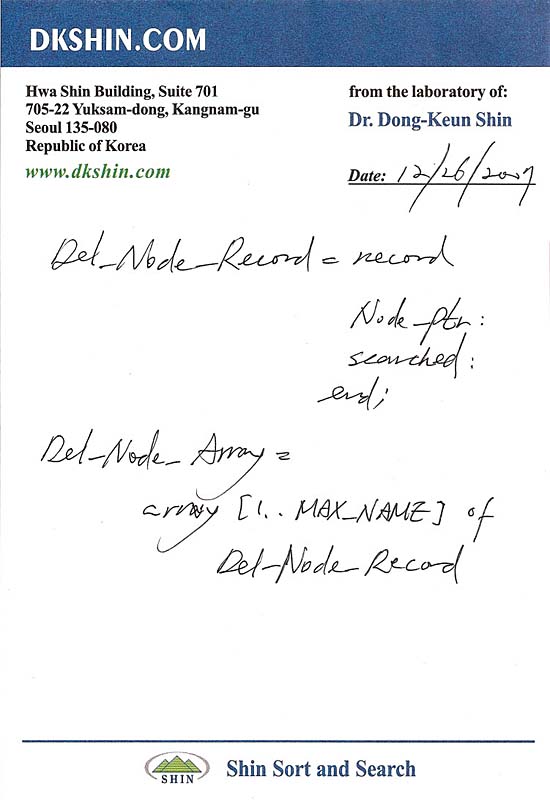 DKSHIN.COM
Hwa Shin Building, Suite 701
705-22 Yuksam-dong, Kangnam-gu
Seoul 135-080
Republic of Korea
www.dkshin.com
from the laboratory of:
Dr. Dong-Keun Shin
Date: 12/26/2007
Del_Node_Record = record
Node_ptr:
searched:
end;
Del_Node_Array =
array [1.. MAX_NAME] of
Del_Node_Record
SHIN
Shin Sort and Search